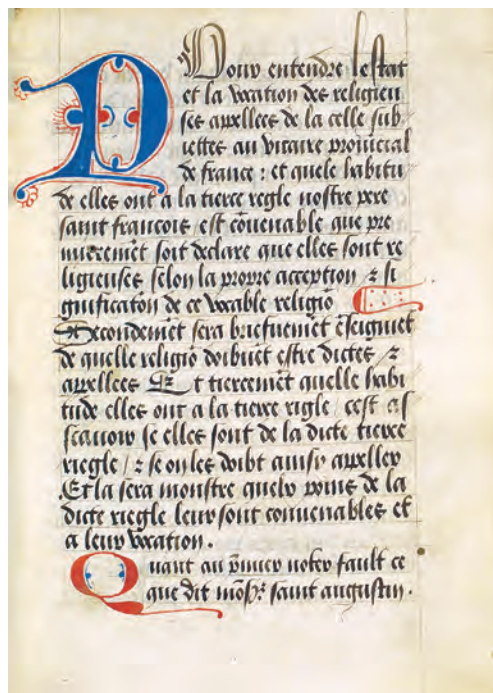 Pour entendre lestat
et la vocation des religieu
ses appellees de la celle sub
iettes au vicaire prouincial
de france : et quele habitu
de elles ont a la tierce regle nostre pere
saint francois est cōuenable que pre
mieremēt soit declare que elles sont re
ligieuses selon la propre acception ⁊ si
gnificatiōn de ce vocable religiō
Secondemēt sera briefuemēt ēseigniet
de quelle religiō doibuēt estre dictes ⁊
appellees Et tiercemēt quelle habi
tude elles ont a la tierce rigle / cest as
scauoir se elles sont de la dicte tierce
riegle / ⁊ se on les doibt ainsy appeller
Et la sera monstre quelx poins de la
dicte riegle leur sont conuenables et
a leur vocation .
Quant au p̄mier noter fault ce
que dit mōsʳ saint augustin .